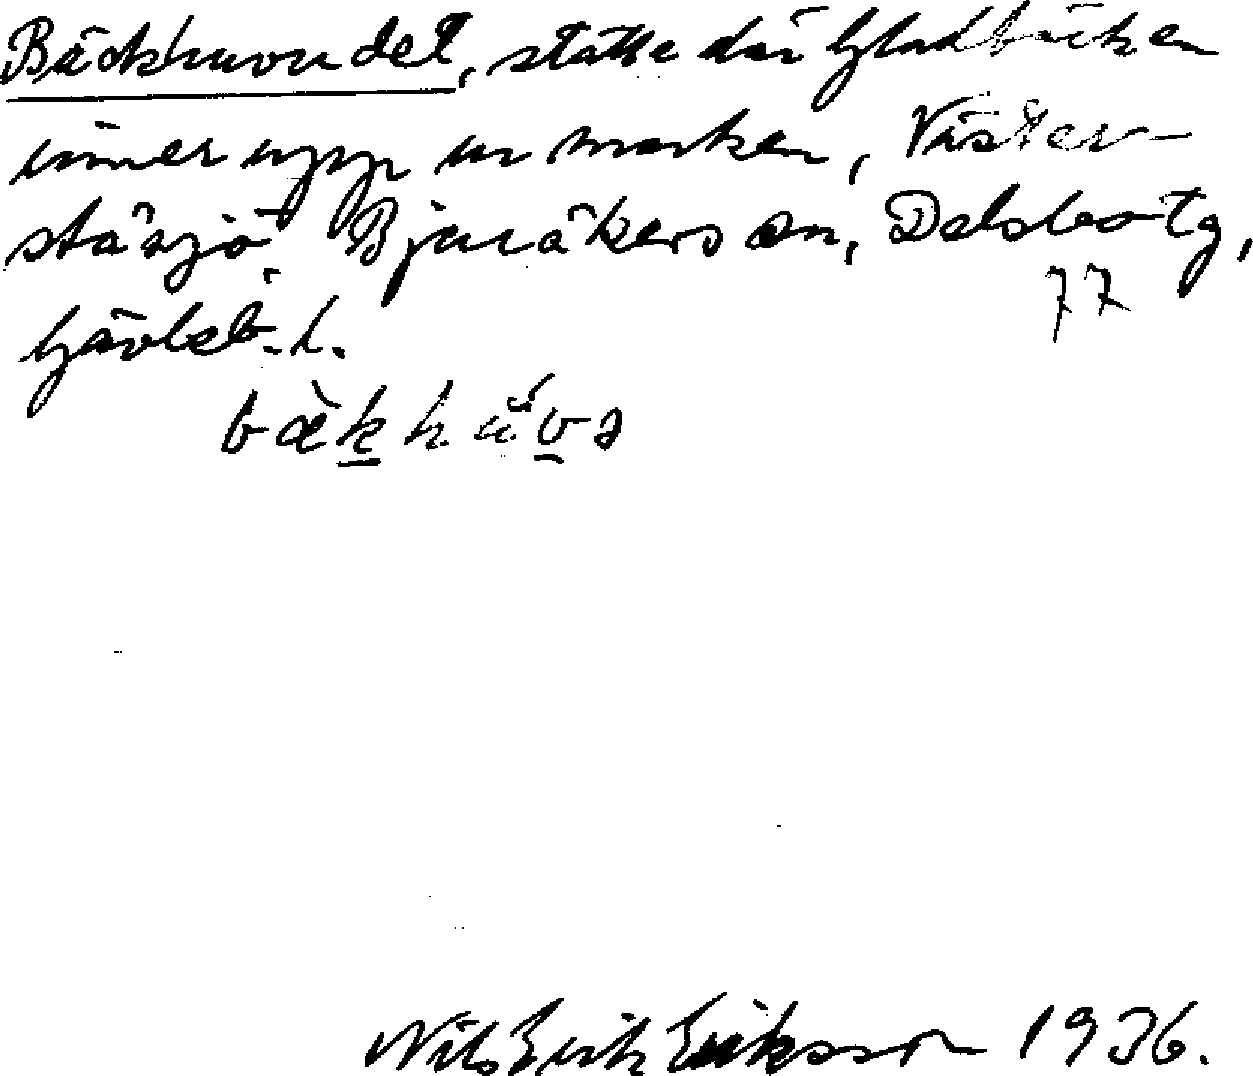 Bäckhuvudet, ställe där Gladbäcken
rinner upp ur marken, Väster-
stråsjö, Bjuråkers sn, Delsbo tg,
77
Gävleb. l.
bæ̀khú̇və
Nils Erik Eriksson 1936.